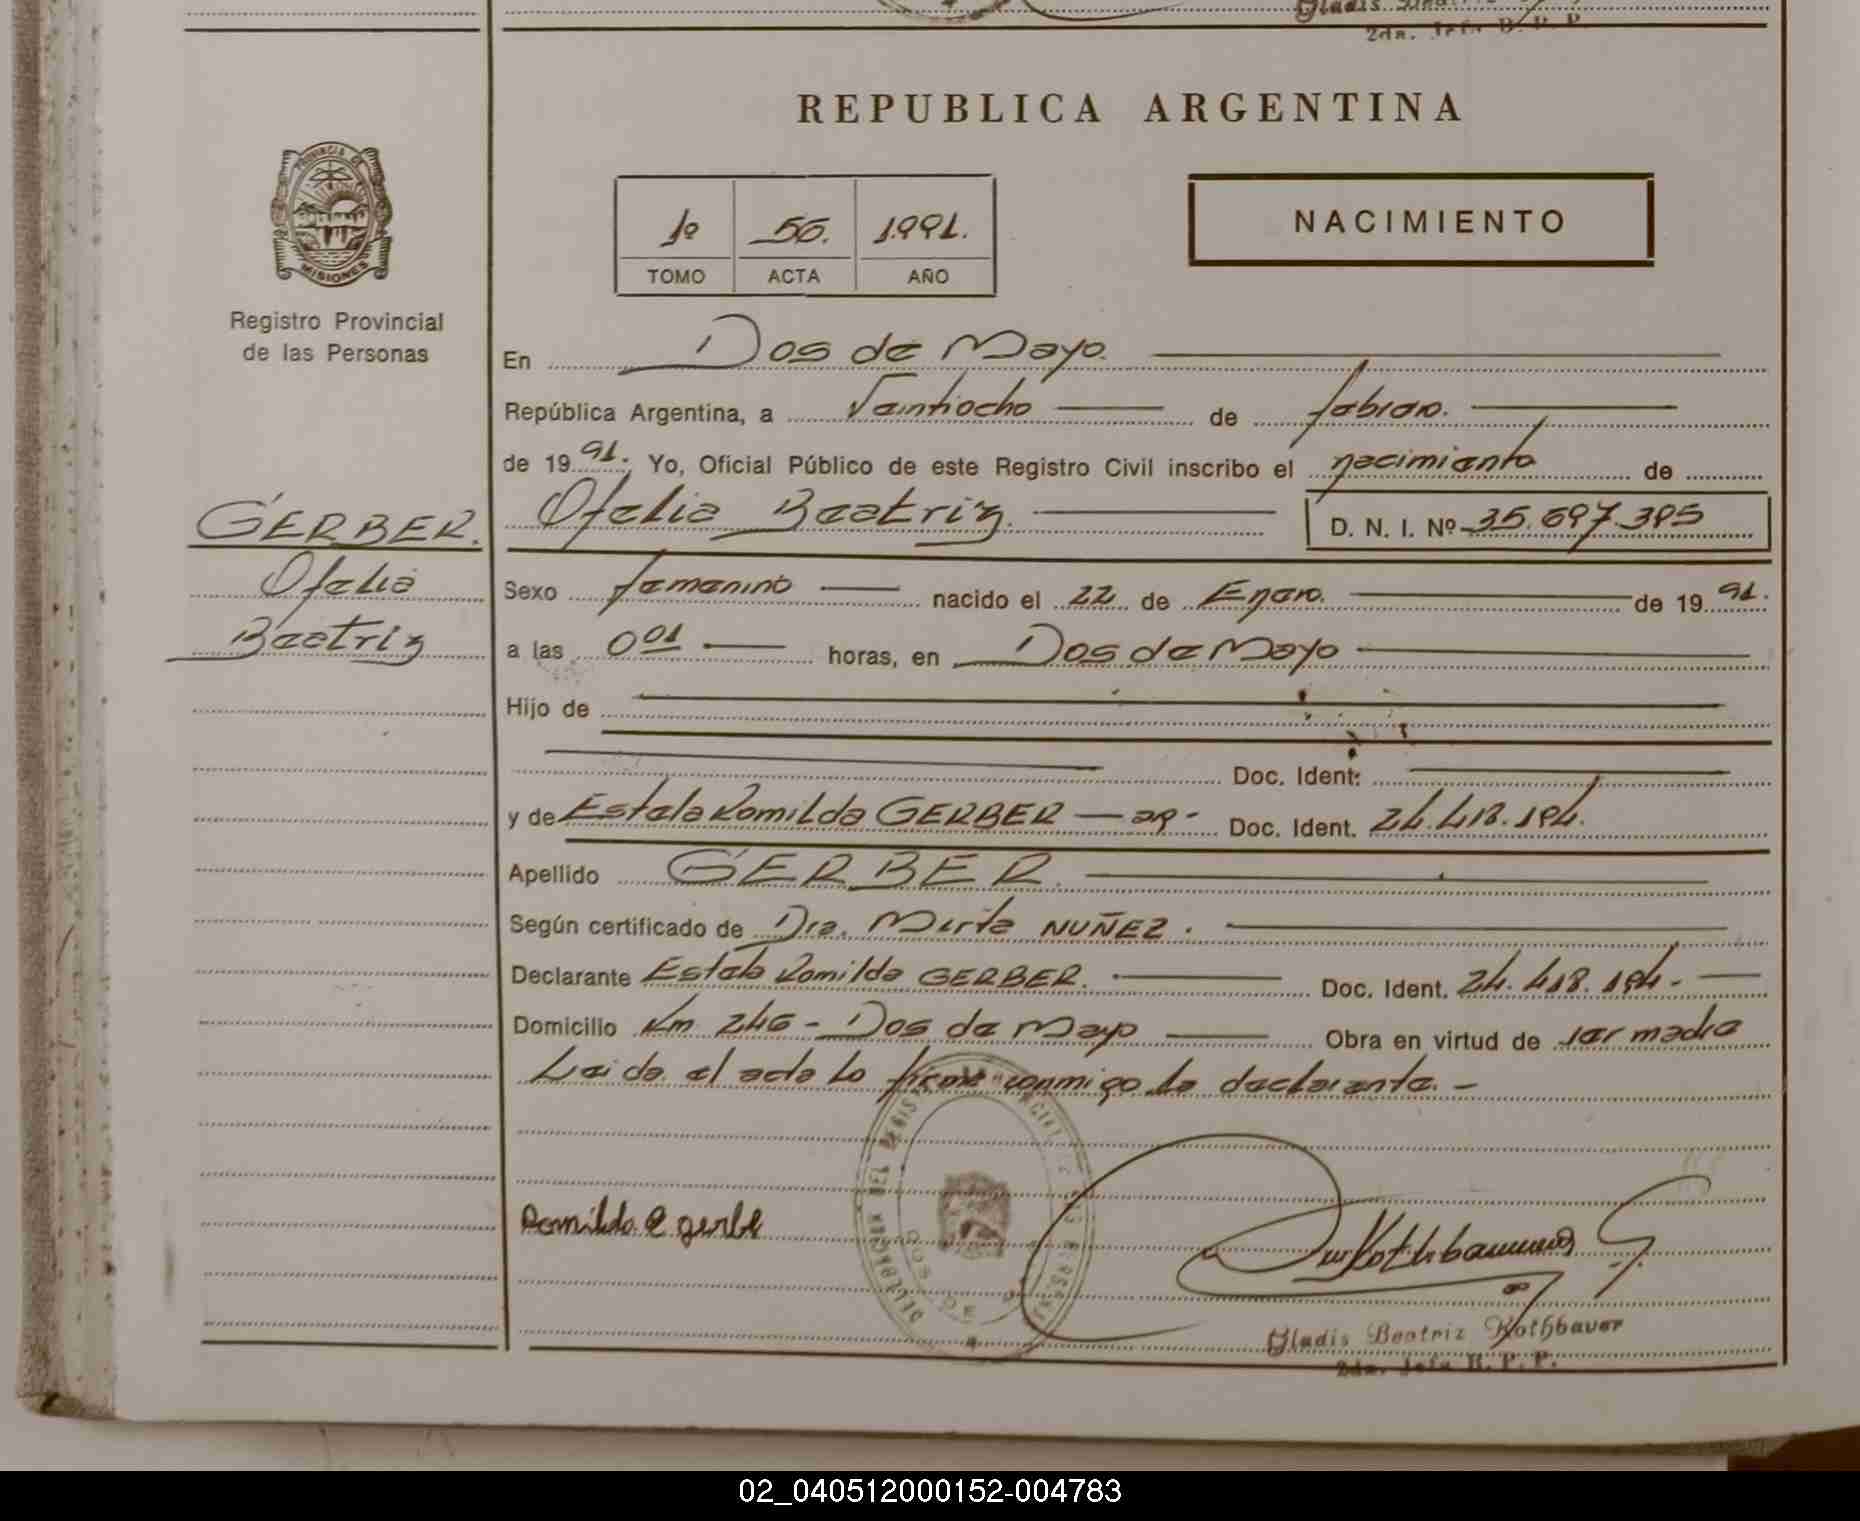 Gladis
2da. Jefa R. P. P.
REPUBLICA ARGENTINA
PROVINCIA DE
MISIONES
Registro Provincial
de las Personas
1º 56. 1.991.
TOMO ACTA AÑO
NACIMIENTO
En Dos de Mayo.
República Argentina, a Veintiocho de febrero.
de 19 91. Yo, Oficial Público de este Registro Civil inscribo el nacimiento de
GERBER.
Ofelia Beatriz. D. N. I. Nº 35.697.395
Ofelia
Beatriz
Sexo femenino nacido el 22 de Enero. de 19 91.
a las 0 01 horas, en Dos de Mayo
Hijo de
Doc. Ident:
y de Estela Romilda GERBER — ar- Doc. Ident. 24.418.194.
Apellido GERBER.
Según certificado de Dra. Mirta NUÑEZ.
Declarante Estela Romilda GERBER. Doc. Ident. 24.418.194.-
Domicilio Km 246 - Dos de Mayo Obra en virtud de ser madre
Leida el acta la firma conmigo la declarante.-
DELEGACION DEL REGISTRO
DOS DE
Romilda E gerbe
Rothbauer
Gladis Beatriz Rothbauer
2da. Jefa R. P. P.
02_040512000152-004783